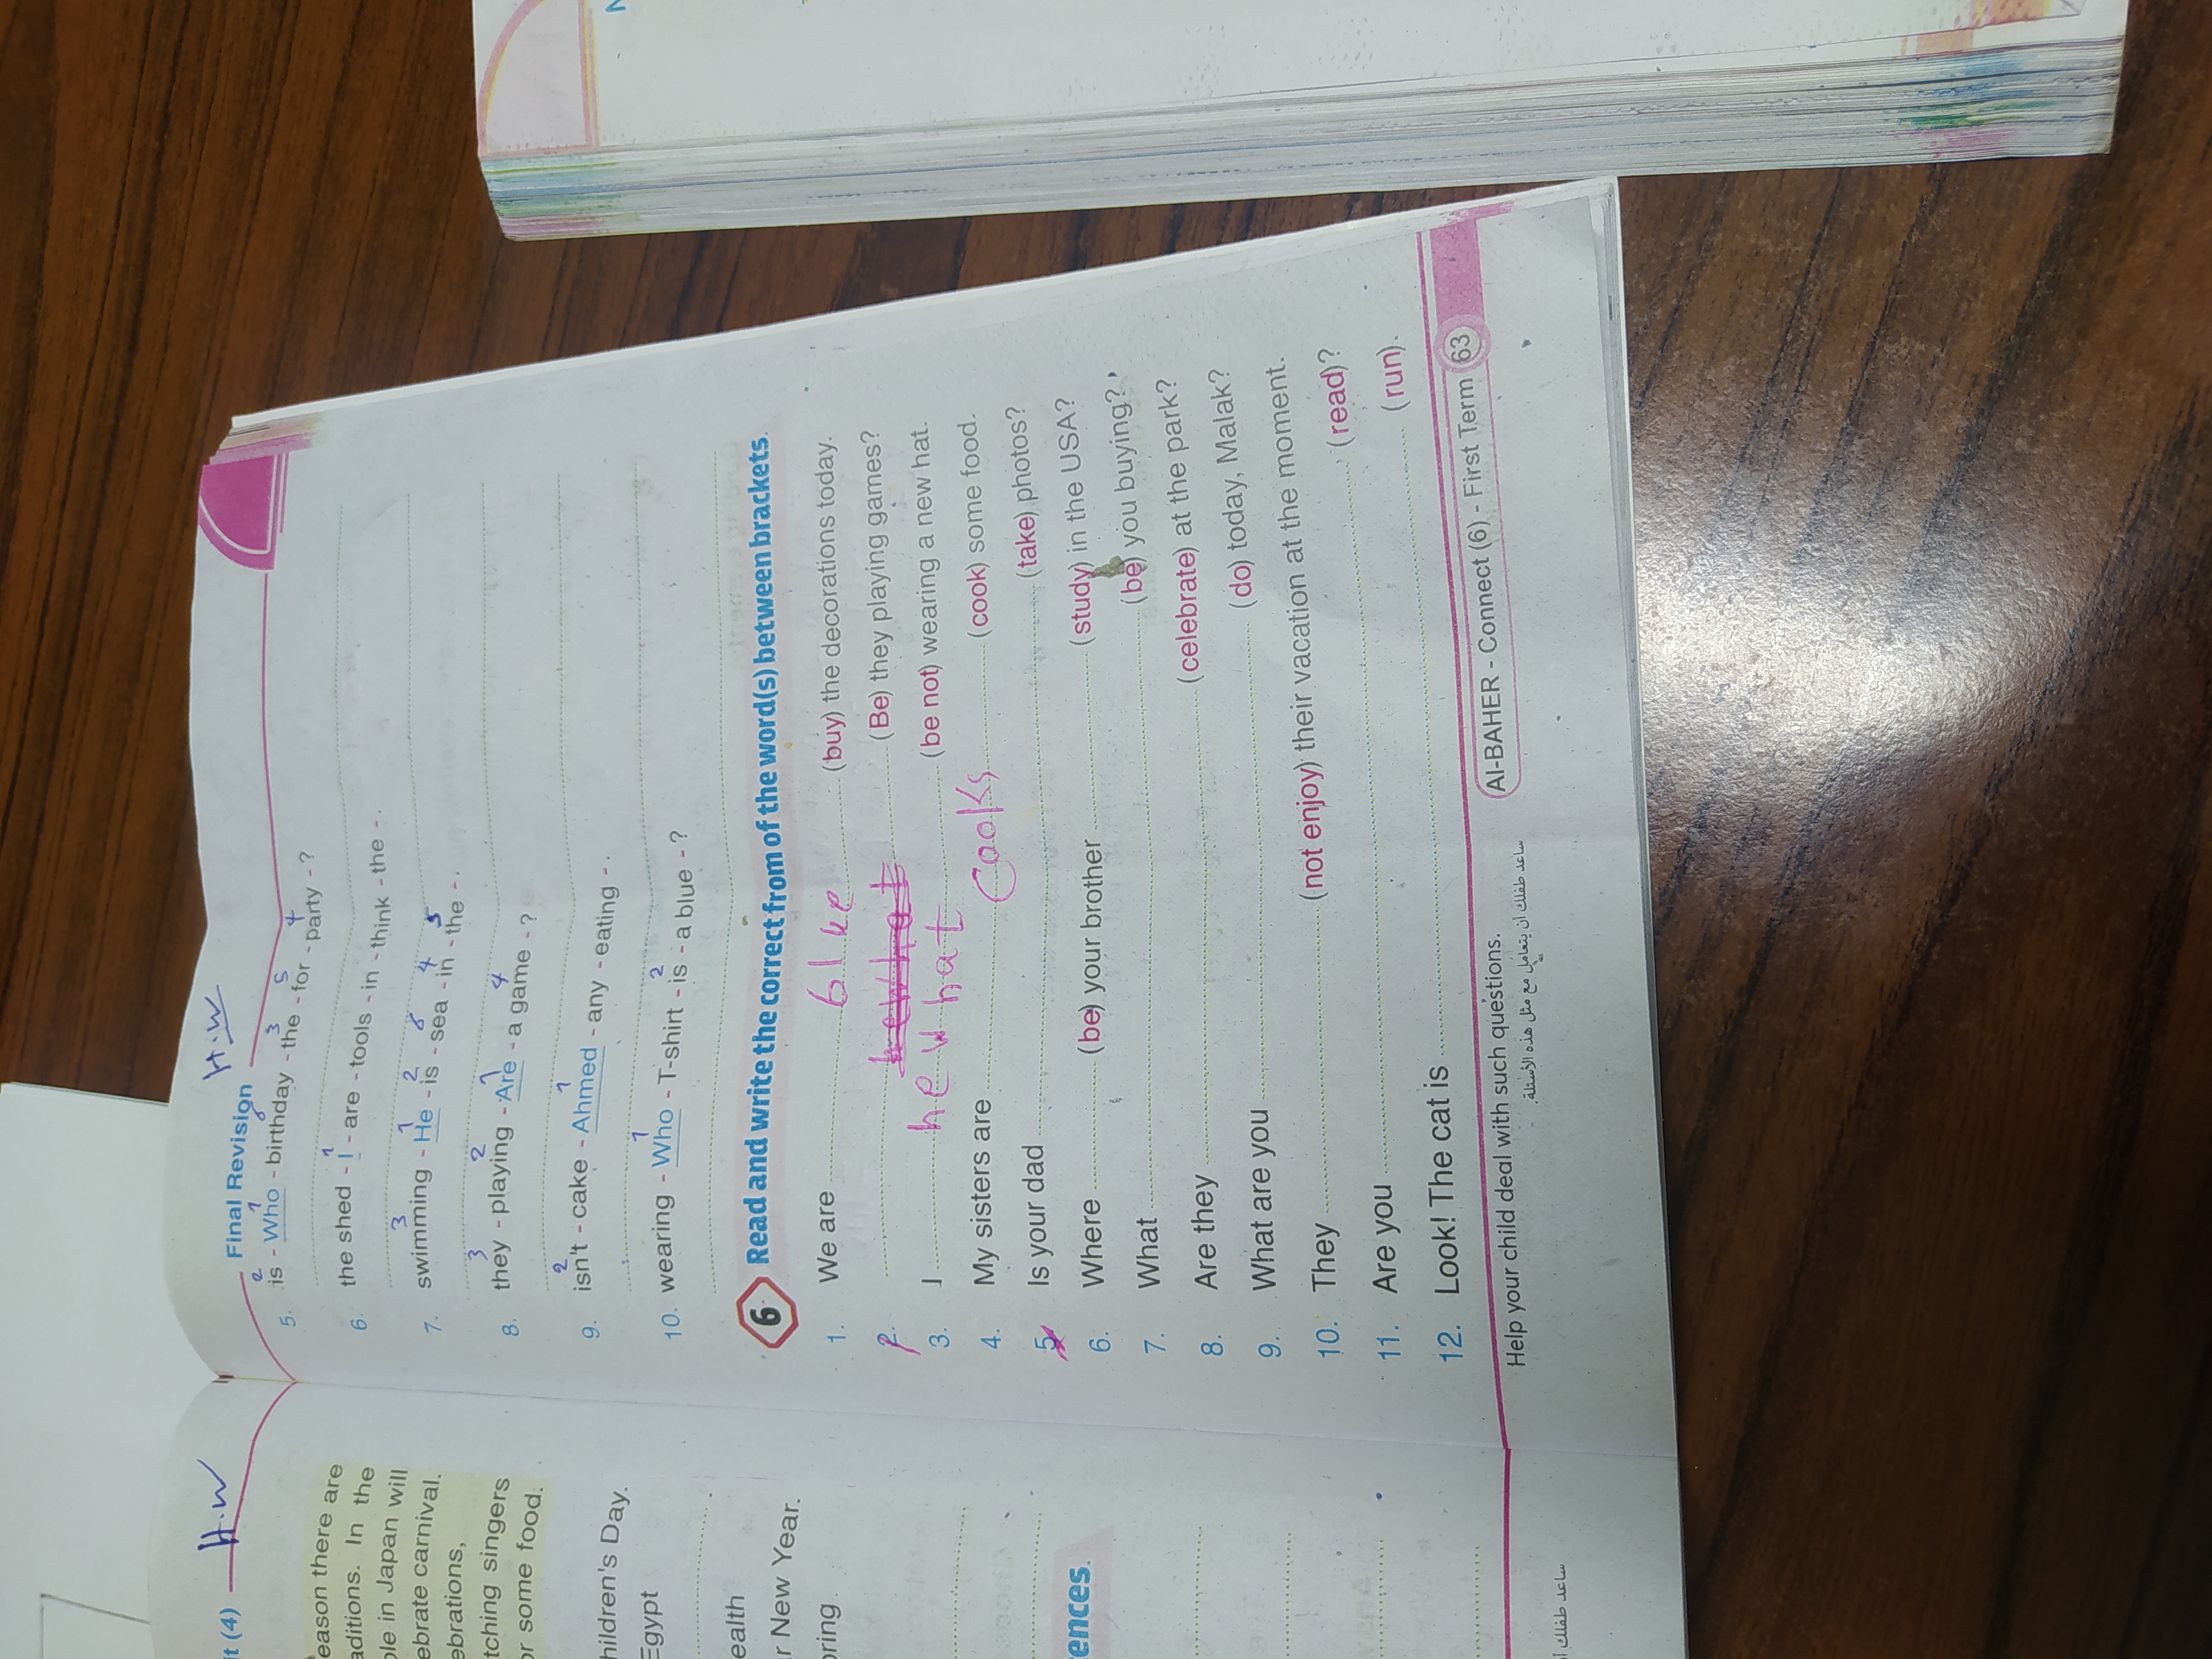 it (4)
H.W
eason there are
aditions. In the
ple in Japan will
ebrate carnival.
ebrations,
tching singers
or some food.
hildren's Day.
Egypt
ealth
r New Year.
oring
ences.
ساعد طفلك أ
H.W
Final Revision
2 1 6 3 5 4
5. is - Who - birthday - the - for - party - ?
1
6. the shed - I - are - tools - in - think - the - .
3 1 2 6 4 5
7. swimming - He - is - sea - in - the - .
3 2 1 4
8. they - playing - Are - a game - ?
2 1
9. isn't - cake - Ahmed - any - eating - .
1 2
10. wearing - Who - T-shirt - is - a blue - ?
6 Read and write the correct from of the word(s) between brackets.
1. We are blue (buy) the decorations today.
2. (Be) they playing games?
3. I hew hat (be not) wearing a new hat.
4. My sisters are Cooks (cook) some food.
5. Is your dad (take) photos?
6. Where (be) your brother (study) in the USA?
7. What (be) you buying?
8. Are they (celebrate) at the park?
9. What are you (do) today, Malak?
10. They (not enjoy) their vacation at the moment.
11. Are you (read)?
12. Look! The cat is (run).
Help your child deal with such questions.
ساعد طفلك أن يتعامل مع مثل هذه الأسئلة.
Al-BAHER - Connect (6) - First Term 63